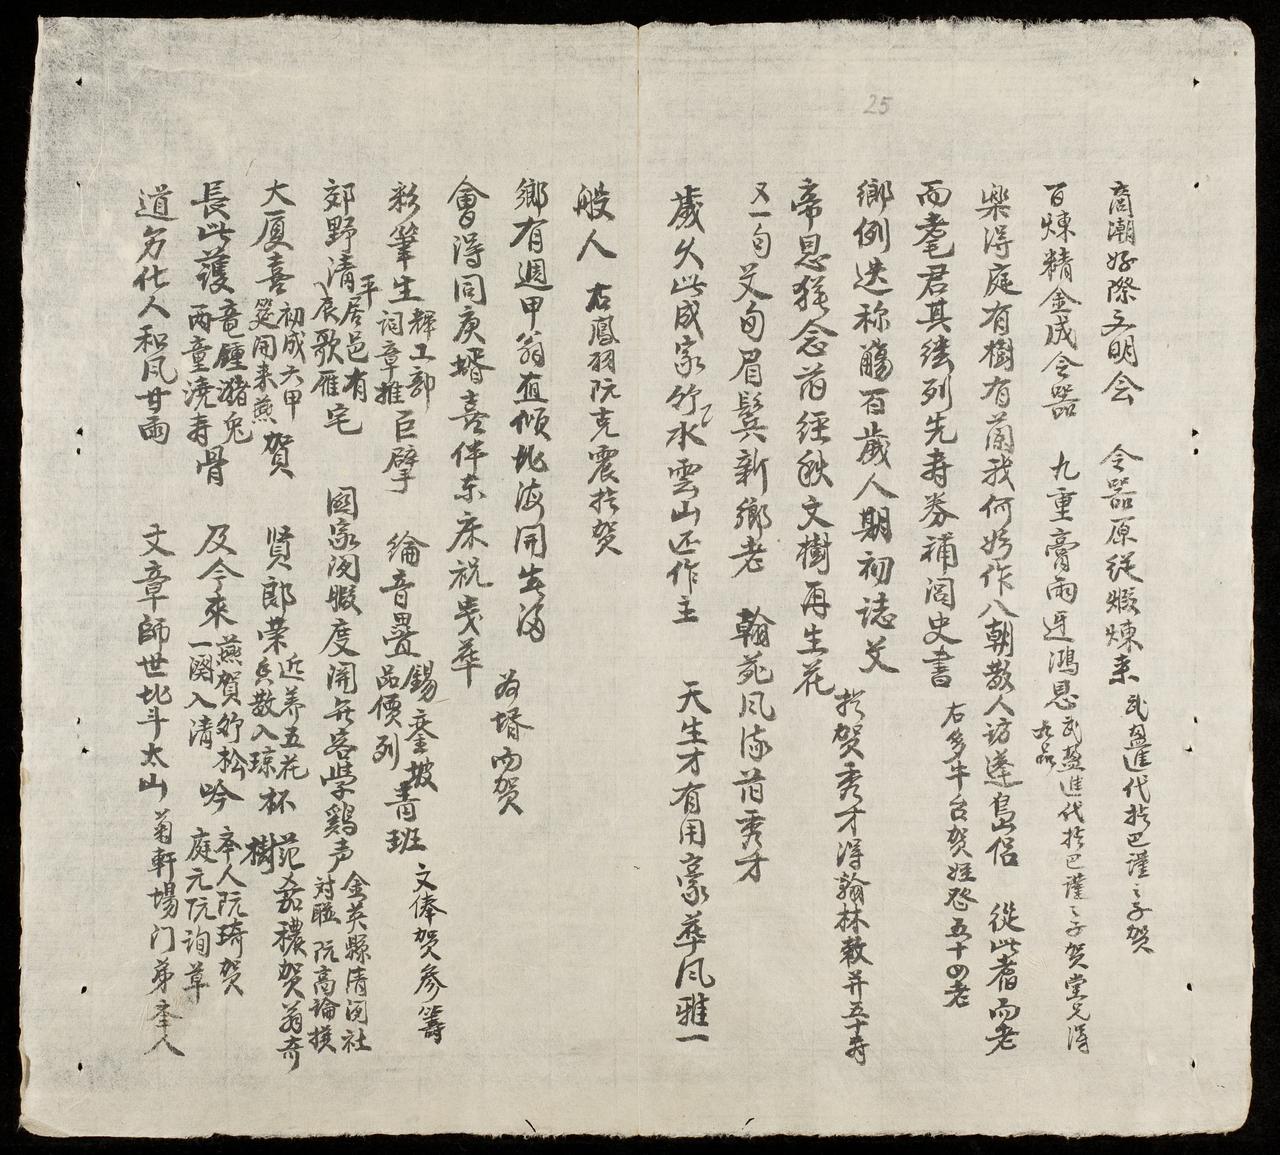 25
商潮好際文明会 令器原従煅煉来 武盈進代拈巴謹之子賀
百煉精金成令器 九重膏雨迓鴻恩 武盈進代拈巴謹之子賀堂兄得九品
樂得庭有樹有蘭我何妨作八朝散人訪蓬島侶 從此耆而老
而耄君其继列先寿券補閣史書 右多牛台賀姪登五十四老
鄉例迭称觴百歲人期初誌艾
帝恩犹念旧經秋文樹再生花 拈賀秀才淂翰林敕并五十寿
又一句 艾旬眉鬂新鄉老 翰苑风流旧秀才
歲久此成家竹水雲山还作主 天生才有用豪華风雅一
般人 右鳳羽阮克震拈賀
鄉有週甲翁直傾北海開
會得同庚壻喜伴东床祝 為壻而賀
彩筆生輝工部詞章推巨擘 綸音疊錫銮披品價列青班 文俸贺参籌
郊野清平居邑有哀歌雁宅 國家闲暇度開 客学鷄声 金英縣清闲社阮高論撰对联
大厦喜初成六甲筵開来燕賀 賢郎荣近养五花 散入琼杯 范 茘穠贺翁奇樹
長此護竜鍾猪兔两童澆寿骨 及今來燕賀竹松一闋入清吟 夲人阮琦賀庭元阮詢草
道 化人和风甘雨 文章師世北斗太山 菊軒場门弟夲人